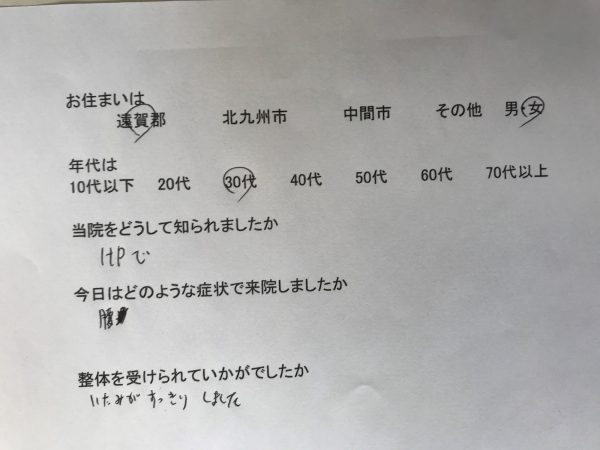 お住まいは
遠賀郡 北九州市 中間市 その他 男・女
年代は
10代以下 20代 30代 40代 50代 60代 70代以上
当院をどうして知られましたか
HPで
今日はどのような症状で来院しましたか
腰
整体を受けられていかがでしたか
いたみがすっきりしました